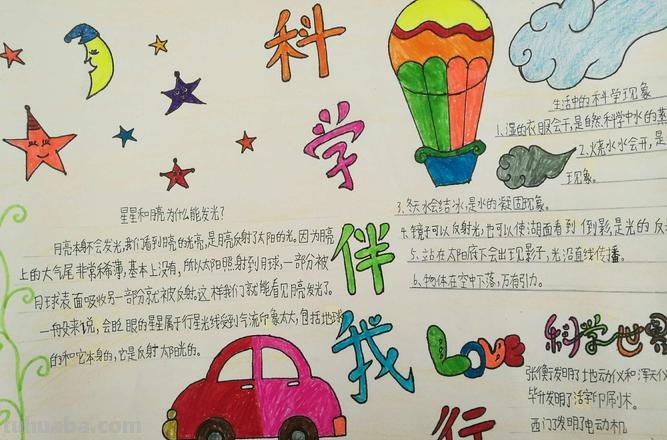 科学伴我行
星星和月亮为什么能发光?
月亮本身不会发光,我们看到月亮的光亮,是月亮反射了太阳的光。因为月亮
上的大气尾非常稀薄,基本上没有,所以太阳照射到月球,一部分被
月球表面吸收另一部分就被反射。这样我们就能看见月亮发光了。
一般来说,会眨眼的星星属于行星光线受到气流印象太大,包括地球
的和它本身的,它是反射太阳光的。
生活中的科学现象
1.湿的衣服会干,是自然科学中水的蒸
2.烧水水会开,是
现象。
3.冬天水会结冰,是水的凝固现象。
4.镜子可以反射光,也可以使湖面看到倒影,是光的反
5.站在太阳底下会出现影子,光沿直线传播。
6.物体在空中下落,万有引力。
Love 科学世界
张衡发明了地动仪和浑天仪
毕升发明了活字印刷术。
西门子发明了电动机
tuhuaba.com